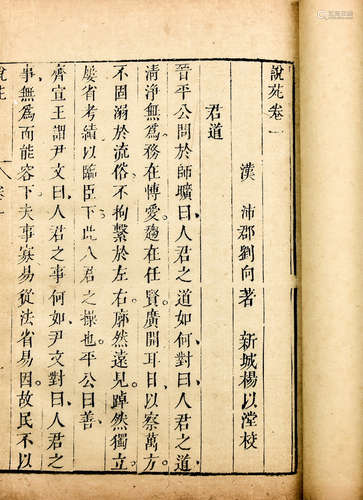 說苑卷一
漢 沛郡劉向著 新城楊以漟校
君道
晉平公問於師曠曰人君之道如何對曰人君之道
清淨無爲務在博愛趨在任賢廣開耳目以察萬方
不固溺於流俗不拘繫於左右廓然遠見踔然獨立
屢省考績以臨臣下此人君之操也平公曰善
齊宣王謂尹文曰人君之事何如尹文對曰人君之
事無爲而能容下夫事寡易從法省易因故民不以